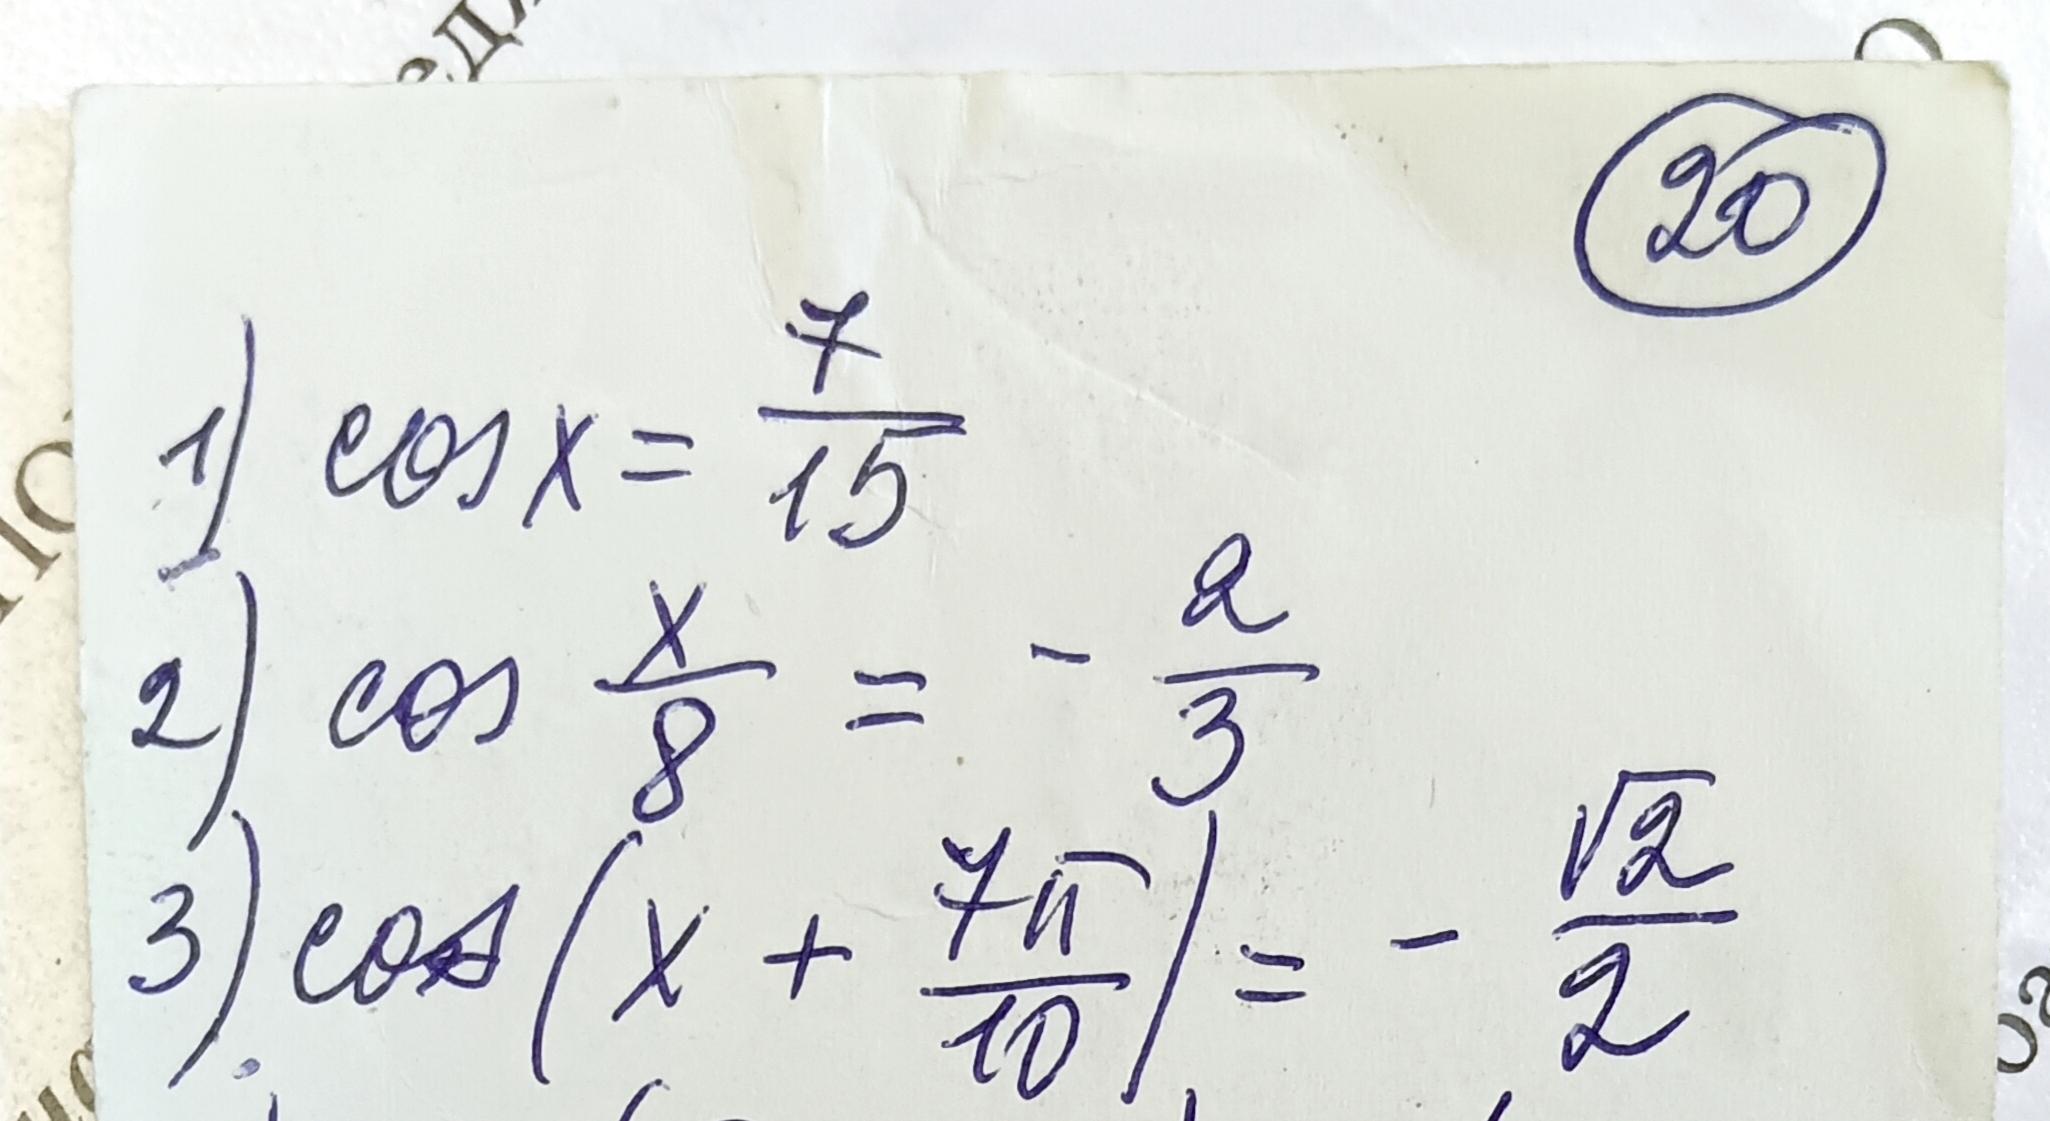 20
1) cos x = 7/15
2) cos x/8 = - 2/3
3) cos(x + 7π/10) = - √2/2